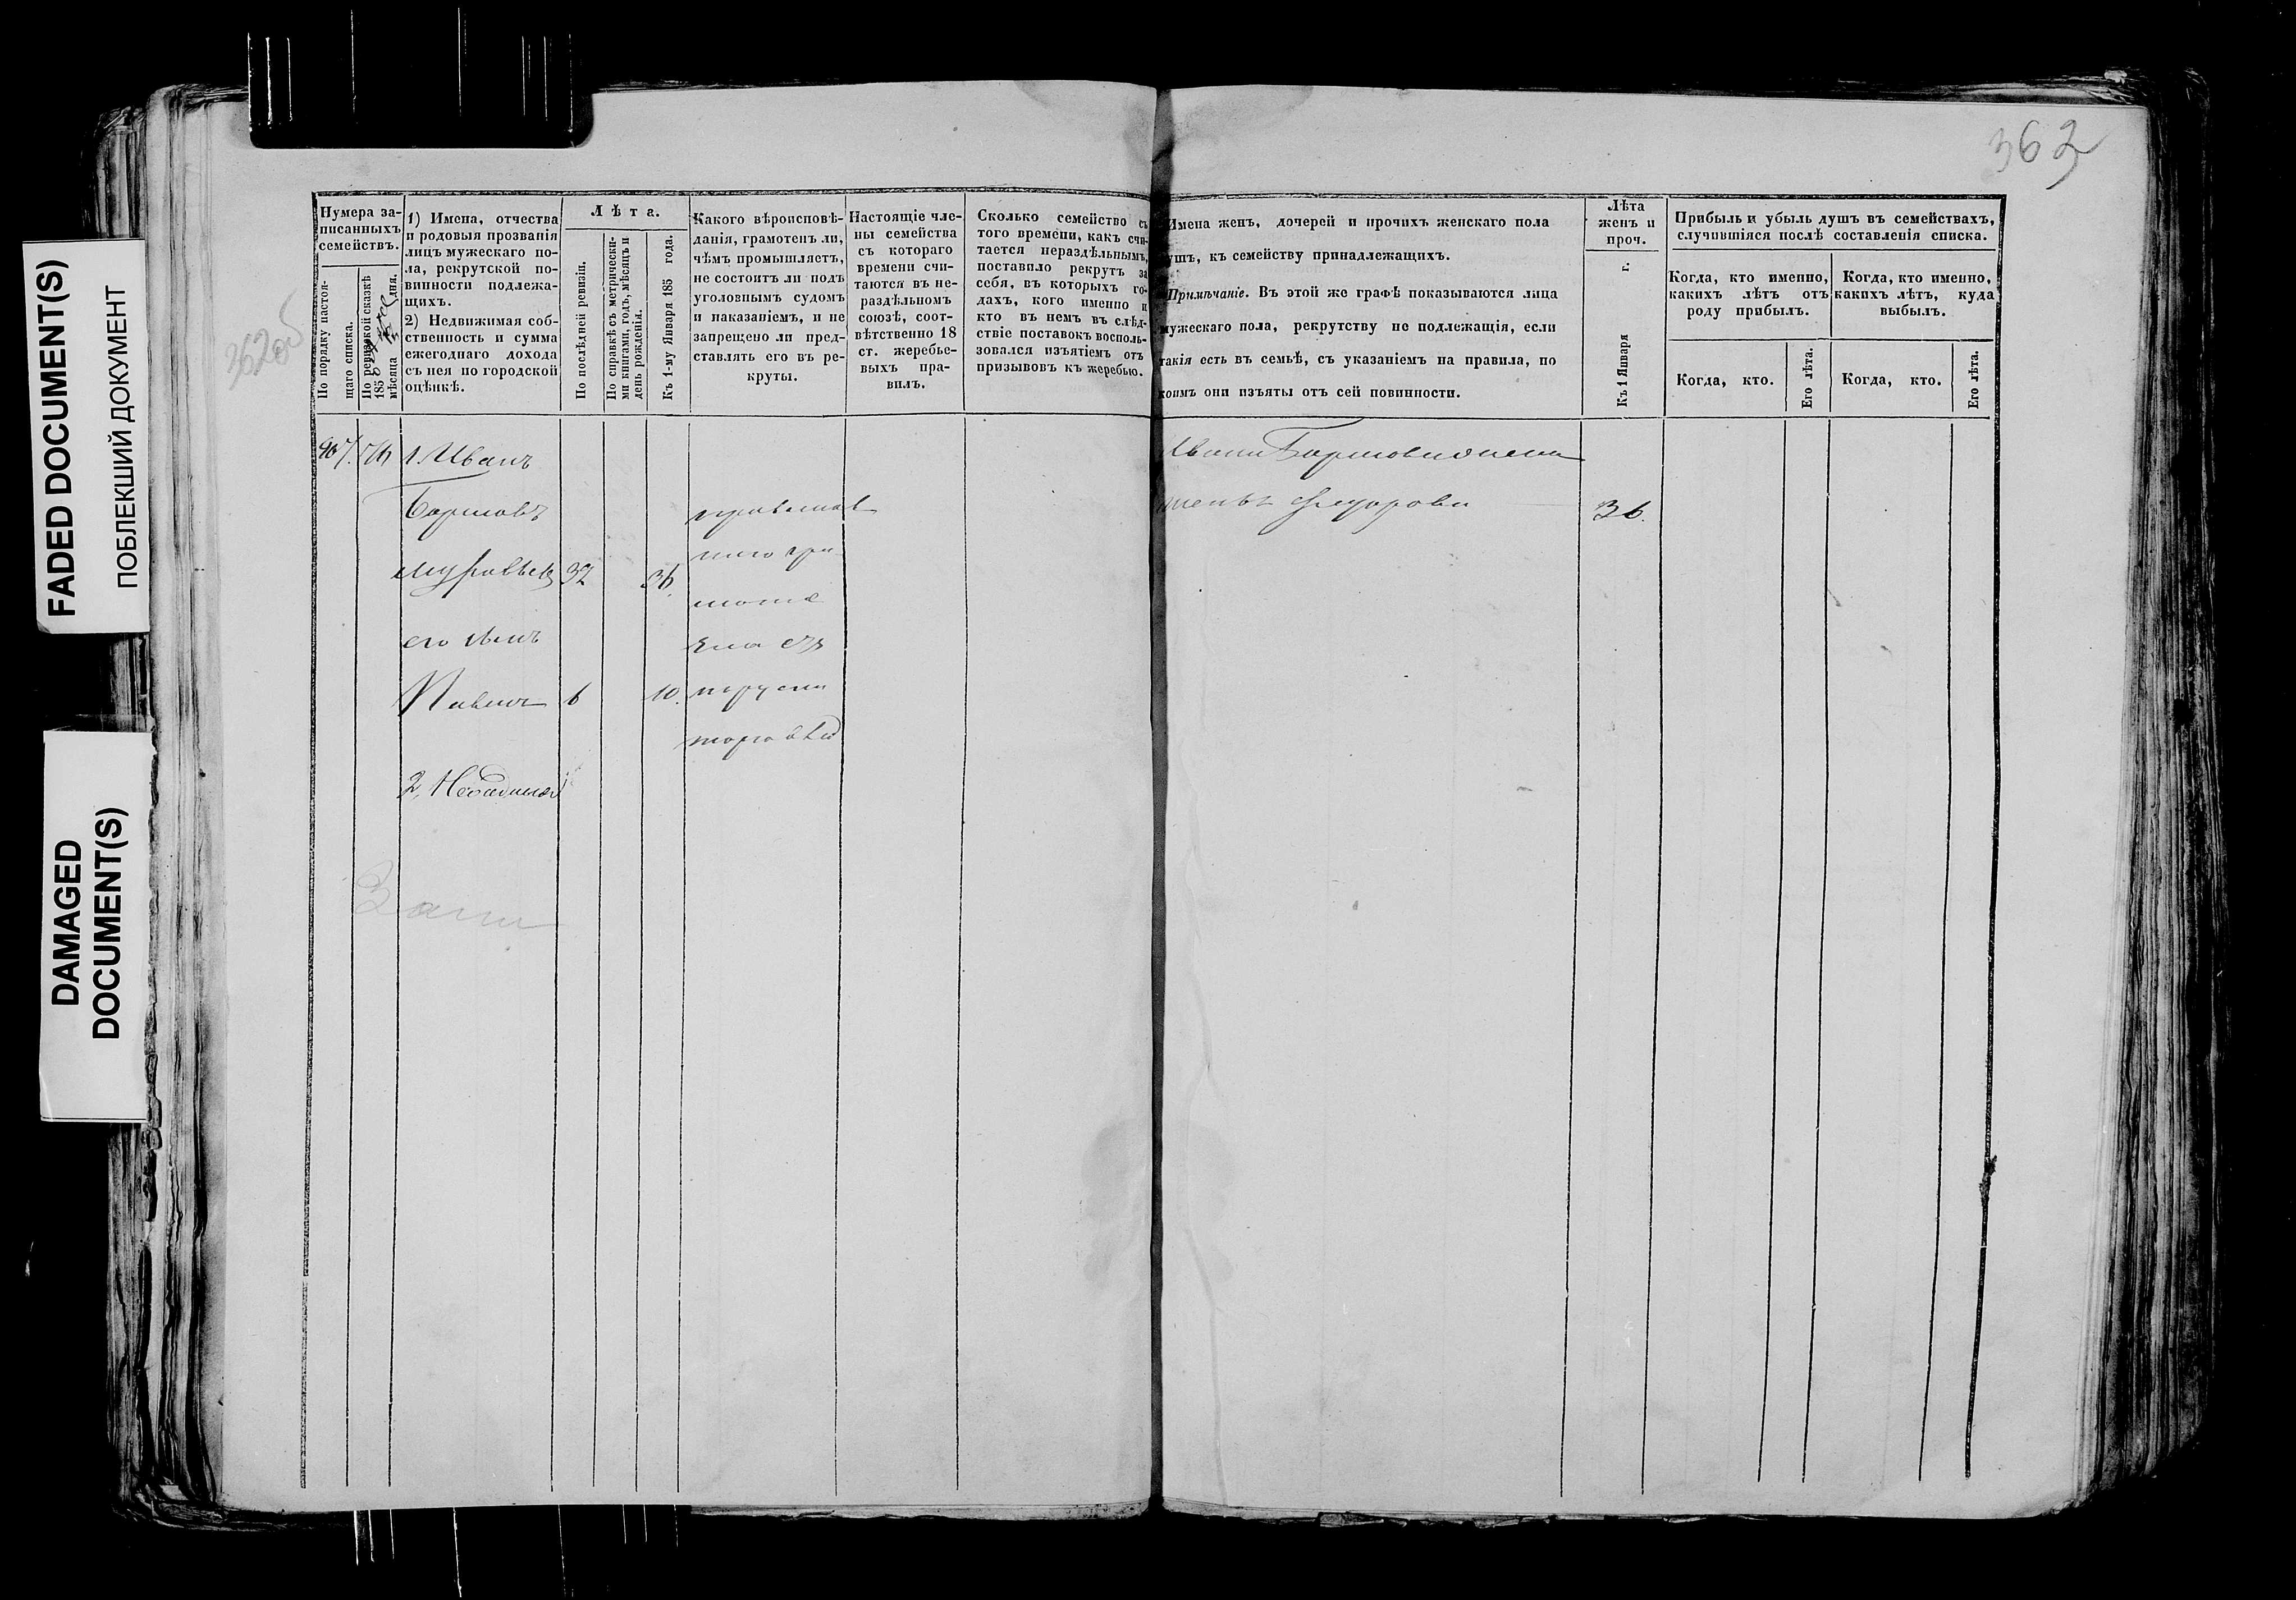 FADED DOCUMENT(S)
ПОБЛЕКШИЙ ДОКУМЕНТ
DAMAGED
DOCUMENT(S)
362об
363
Нумера за-
писанныхъ
семействъ.
По порядку настоя-
щаго списка.
По ревизской сказкѣ
185
мѣсяца дня.
1) Имена, отчества
и родовыя прозванія
лицъ мужескаго по-
ла, рекрутской по-
винности подлежа-
щихъ.
2) Недвижимая соб-
ственность и сумма
ежегоднаго дохода
съ нея по городской
оцѣнкѣ.
Лѣта.
По послѣдней ревизіи.
По справкѣ съ метрически-
ми книгами, годъ, мѣсяцъ и
день рожденія.
Къ 1-му Января 185 года.
Какого вѣроисповѣ-
данія, грамотенъ ли,
чѣмъ промышляетъ,
не состоитъ ли подъ
уголовнымъ судомъ
и наказаніемъ, и не
запрещено ли пред-
ставлять его въ ре-
круты.
Настоящіе чле-
ны семейства
съ котораго
времени счи-
таются въ не-
раздѣльномъ
союзѣ, соот-
вѣтственно 18
ст. жеребье-
выхъ пра-
вилъ.
Сколько семейство съ
того времени, какъ счи-
тается нераздѣльнымъ,
поставило рекрутъ за
себя, въ которыхъ го-
дахъ, кого именно и
кто въ немъ въ слѣд-
ствіе поставокъ восполь-
зовался изъятіемъ отъ
призывовъ къ жеребью.
Имена женъ, дочерей и прочихъ женскаго пола
душъ, къ семейству принадлежащихъ.
Примѣчаніе. Въ этой же графѣ показываются лица
мужескаго пола, рекрутству не подлежащія, если
такія есть въ семьѣ, съ указаніемъ на правила, по
коимъ они изъяты отъ сей повинности.
Лѣта
женъ и
проч.
Къ 1 Января г.
Прибыль и убыль душъ въ семействахъ,
случившіяся послѣ составленія списка.
Когда, кто именно,
какихъ лѣтъ отъ
роду прибылъ.
Когда, кто именно,
какихъ лѣтъ, куда
выбылъ.
Когда, кто.
Его лѣта.
Когда, кто.
Его лѣта.
1. Иванъ
Борисовъ
32
36.
его сынъ
Павелъ 6 10.
православ
наго гра
мотѣ
торговлей
Ивана Борисова жена
Федорова 36.